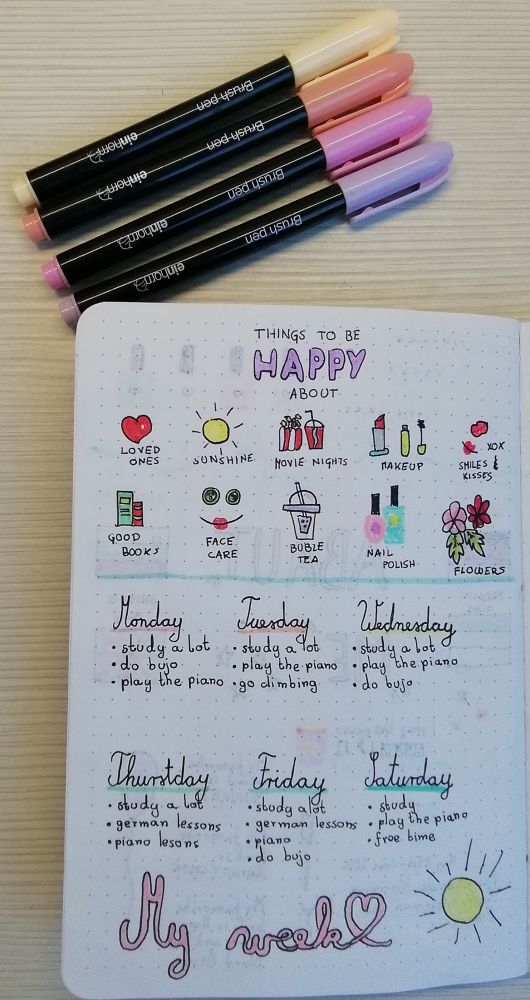 Brush pen
einhorn
Brush pen
einhorn
Brush pen
einhorn
Brush pen
einhorn
THINGS TO BE
HAPPY
ABOUT
LOVED
ONES
SUNSHINE
MOVIE NIGHTS
MAKEUP
XOX
SMILES &
KISSES
GOOD
BOOKS
FACE
CARE
BUBLE
TEA
NAIL
POLISH
FLOWERS
Monday
• study a lot
• do bujo
• play the piano
Tuesday
• study a lot
• play the piano
• go climbing
Wednesday
• study a lot
• play the piano
• do bujo
Thurstday
• study a lot
• german lessons
• piano lesons
Friday
• study alot
• german lessons
• piano
• do bujo
Saturday
• study
• play the piano
• free bime
My week